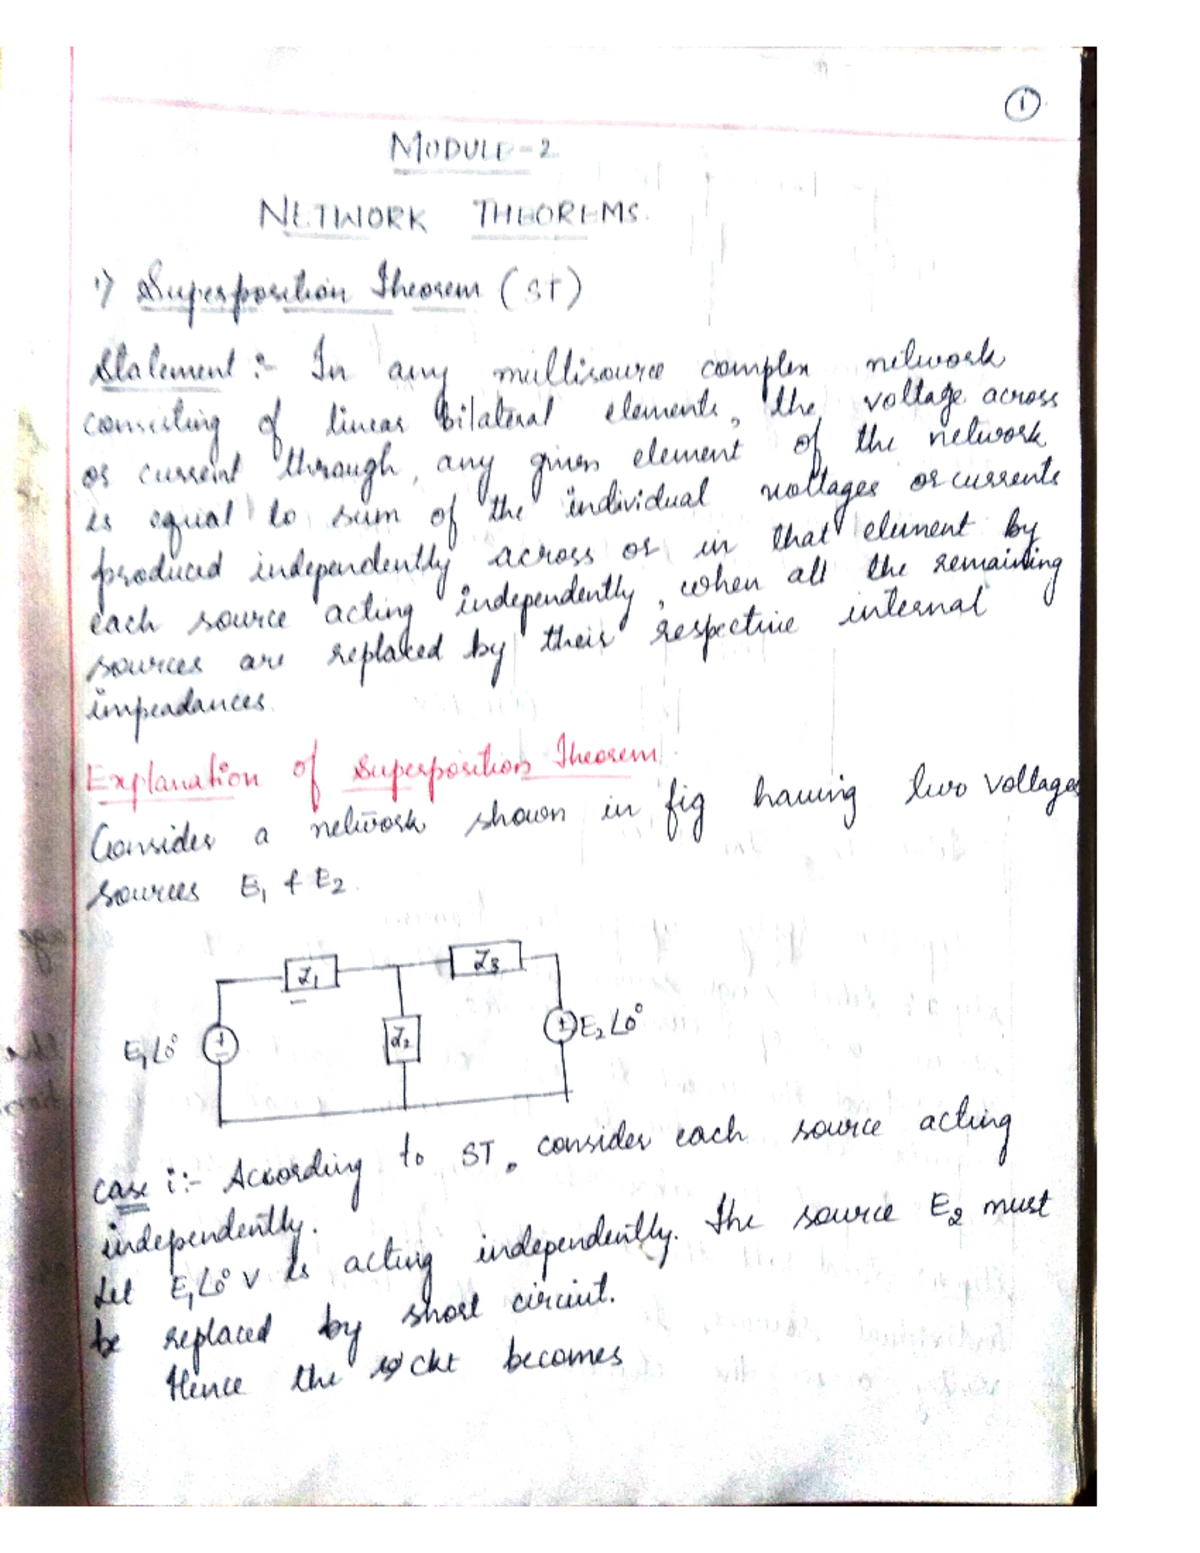 1
MODULE-2
NETWORK THEOREMS.
1) Superposition Theorem (ST)
Statement :- In any multisource complex network
consisting of linear bilateral elements, the voltage across
or current through, any given element of the network
is equal to sum of the individual voltages or currents
produced independently across or in that element by
each source acting independently, when all the remaining
sources are replaced by their respective internal
impeadances.
Explanation of Superposition Theorem.
Consider a network shown in fig having two voltages
sources E1 & E2.
Z1
Z3
E1∠0° +
-
Z2
+ E2∠0°
case i:- According to ST, consider each source acting
independently.
Let E1∠0° V is acting independently. The source E2 must
be replaced by short circuit.
Hence the ckt becomes